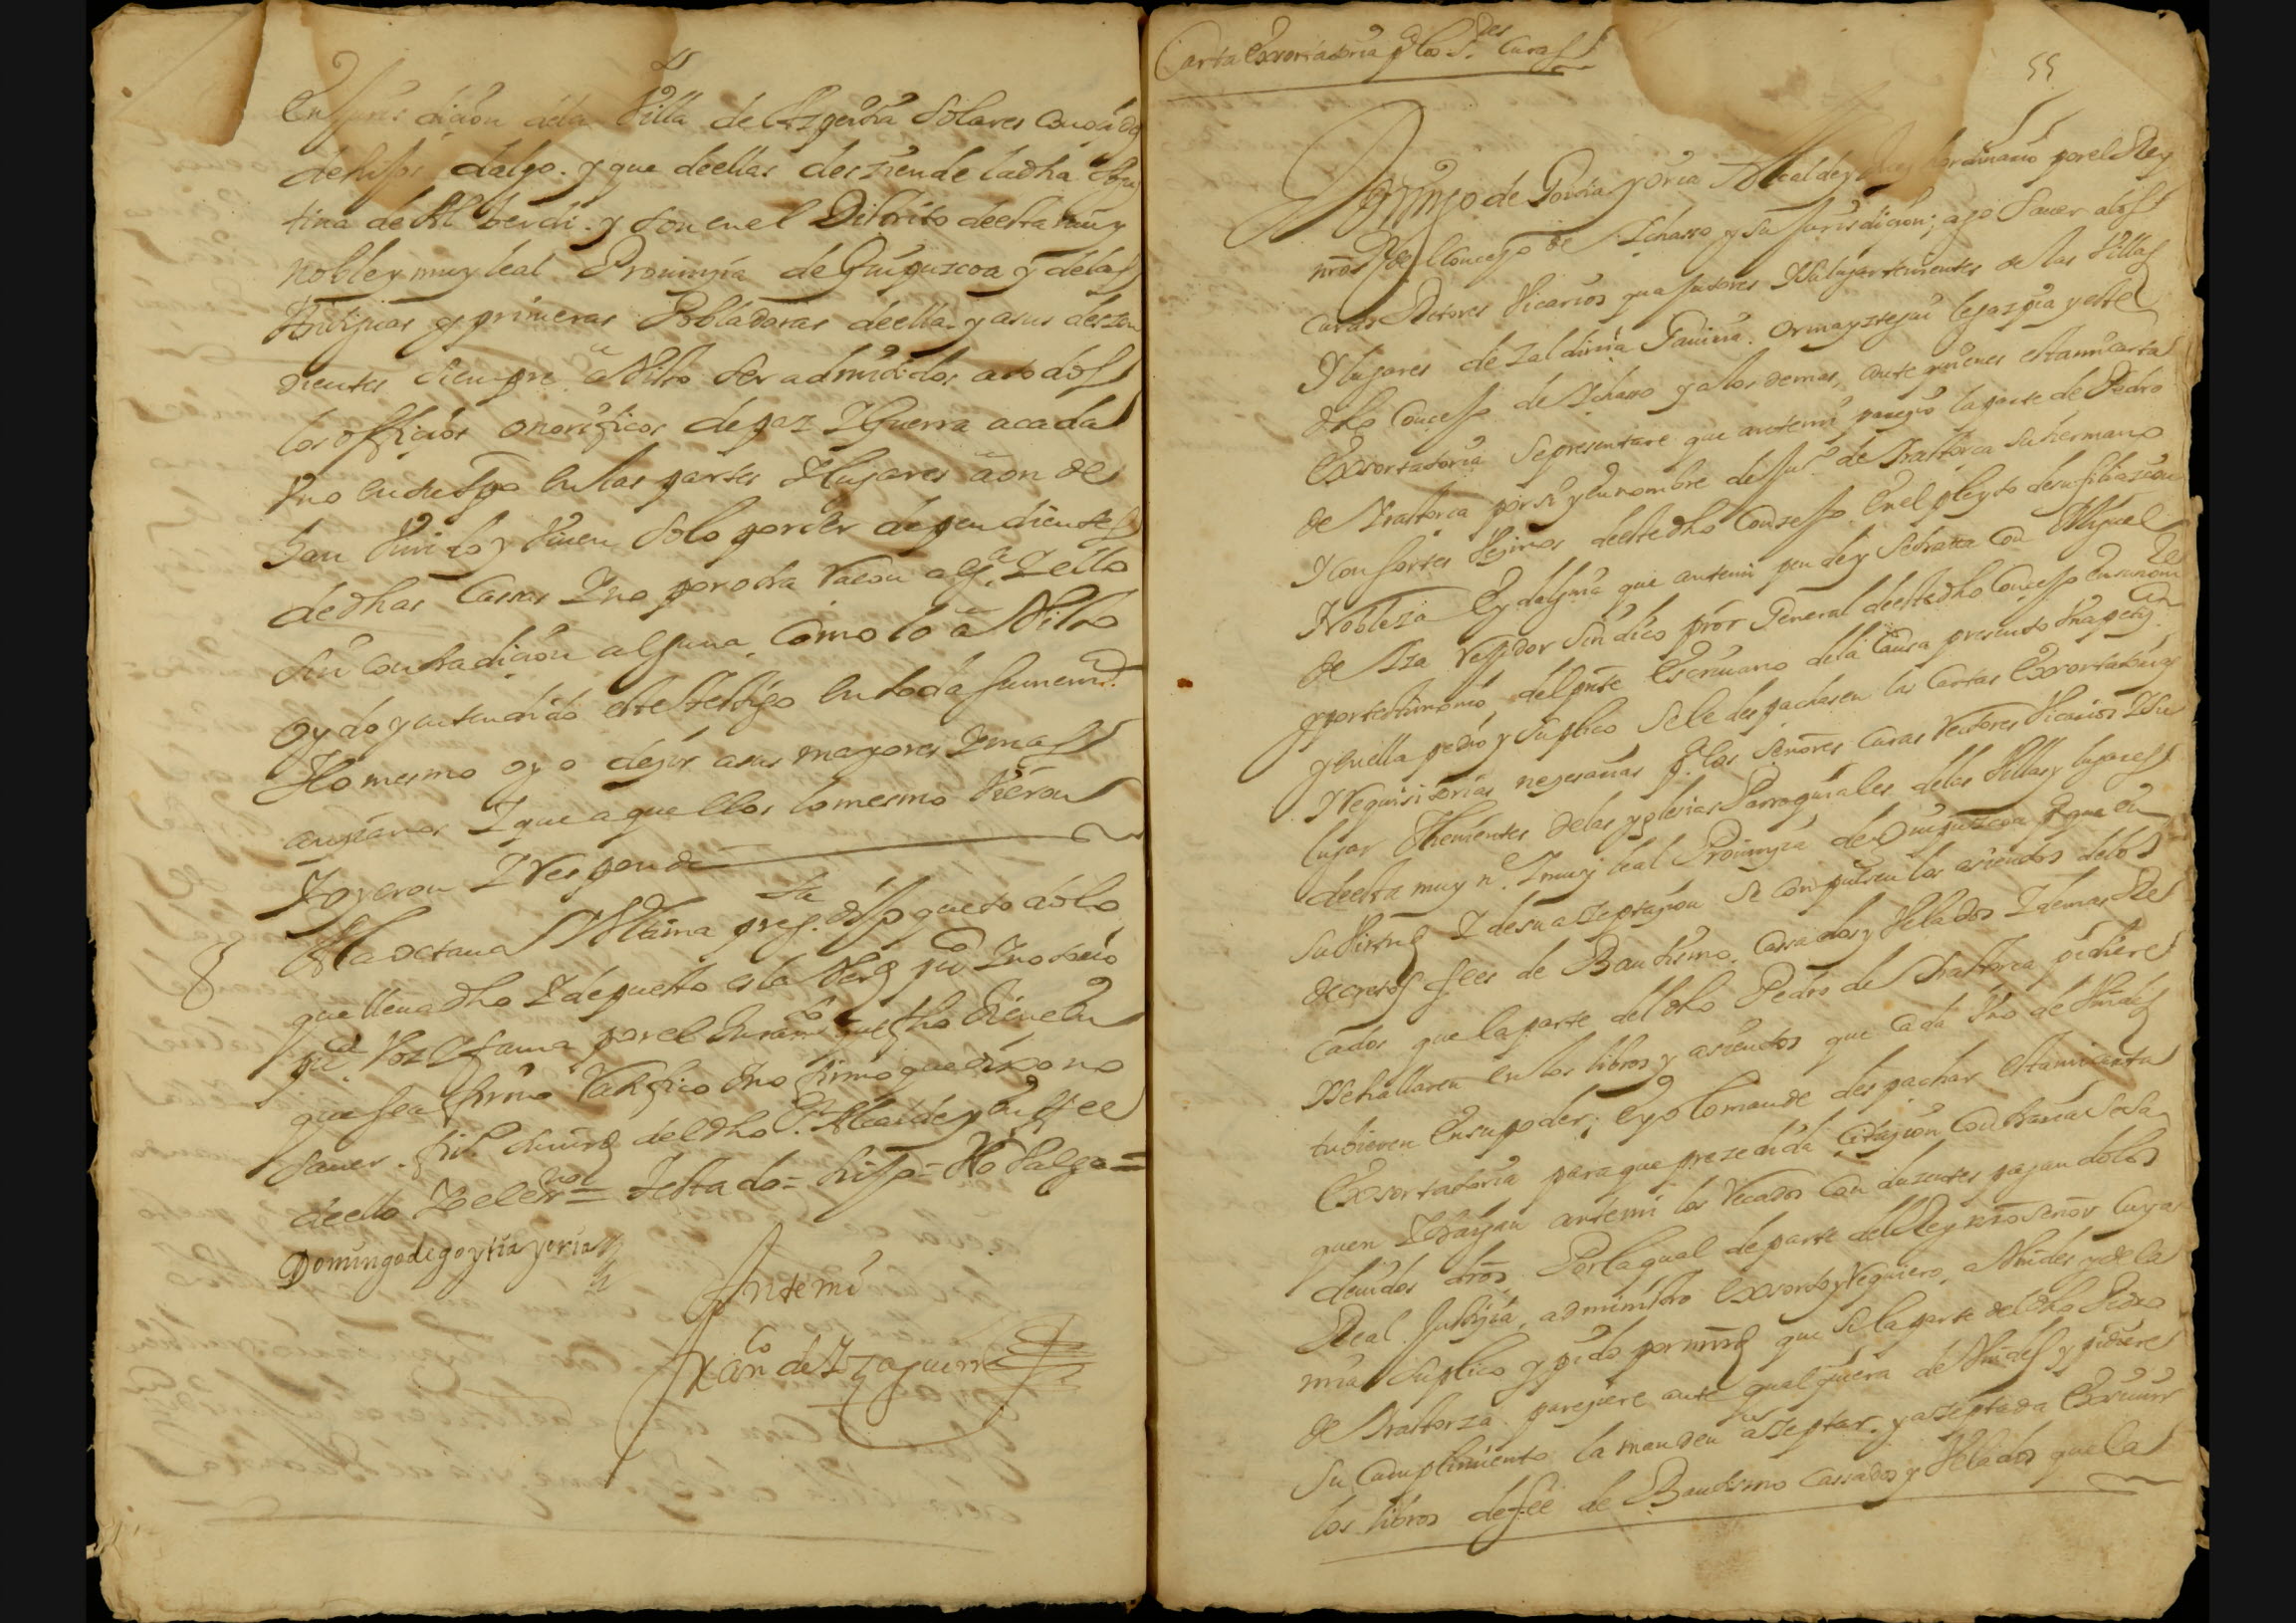 En Juris diçion de la Villa de Azpeitia Solares conoçidos
de hijos dalgo. y que de ellas desziende la dha
tina de Al berdi. y son en el Distrito de esta muy
noble y muy leal Prouinçia de Guipuzcoa y de las
Antiguas y primeras Pobladoras de ella. y a sus deszen
dientes siempre a Visto ser admitidos a todos
los offiçios onorificos de paz Y Guerra a cada
Vno en su tpo en las partes Y lugares aon de
han Viuido y Viuen Solo por ser dependientes
de dhas Cassas Y no por otra raçon alga. Y ello
sin contradiçion alguna. Como lo a Visto
oydo y entendido este testigo en toda su memª.
Y lo mesmo oyo deçir a sus mayores Y mas
ançianos Y que aquellos lo mesmo Vieron
Y oyeron Y Responde
8 A la octaua Vltima pregta. dijo que todo lo
que lleua dho Y depuesto es la Verd puco Y notorio
pca. Voz Y fama por el Juramto que fho tiene en
que se afirmo Ratifico Y no firmo que dixo no
sauer. firmo su mrd del dho Sr. Alcalde y en fee
de ello Yo el essno = testado = hijo = No Valga =
Domingo de goytia yoria
Ante mi
Franco de Yzaguirre
Carta Exsortatoria pa los Sres Curas
55
Domingo de Goitia yoria Alcalde y Juez hordinario por el Rey
nro Sr del Conçejo de Ichasso y su Jurisdiçion; ago Sauer a los
Curas Retores Vicarios y a sus tores Y sus lugartenientes de las Villas
Y lugares de Zaldiuia Gauiria. Ormayztegui legazpia y este
dho Conçejo de Ichasso y a los demas, ante quienes esta mi carta
Exsortatoria Se presentare que ante mi pareçio la parte de Pedro
de Irastorça por si y en nombre de Juº de Irastorça Su hermano
Y Consortes Veçinos de este dho Conzejo. En el pleyto de su filiaçion
Nobleza Eydalguia que ante mi pende y Se trata con Miguel
de Aza Regidor Sindico pror General de este dho Conçejo en su nom
y por testimonio, del pnte Escriuano de la Causa presento Vna petiçn.
y en ella pidio y Suplico Se le despachasen las Cartas Exsortatorias
Y Requisitorias neçesarias pa los Señores Curas Rectores Vicarios Y Su
lugar Thenientes de las yglesias Parroquiales de las Villas y lugares
de esta muy n. Y muy leal Prouinçia de Guipuzcoa Pa que en
Su Virtud Y de su azeptaçion Se Conpulsen los asientos de los
de fees de Bautismo. Cassados y Velados Y demas Re
cados que la parte del dho Pedro de Irastorça pidiere
Y Se hallaren en los libros y asientos que Cada Vno de Vmdes
tubieren En su poder; E yo lo mande despachar esta mi carta
Exsortatoria para que prezedida Çitaçion Contraria Se Sa
quen Y traygan ante mi los Recados Con duzentes pagandoles
deuidos dros. Por la qual de parte del Rey nro Señor Cuya
Real Justiçia, administro Exsorto y Requiero, a Vmdes y de la
mia Suplico y pido por mrd que Si la parte del dho Pedro
de Irastorza. pareçiere ante qualquiera de Vmdes y pidiere
Su Cumplimiento la manden azeptar. y azeptada Exsiuir
los libros de fee de Bautismo Cassados y Velados que la